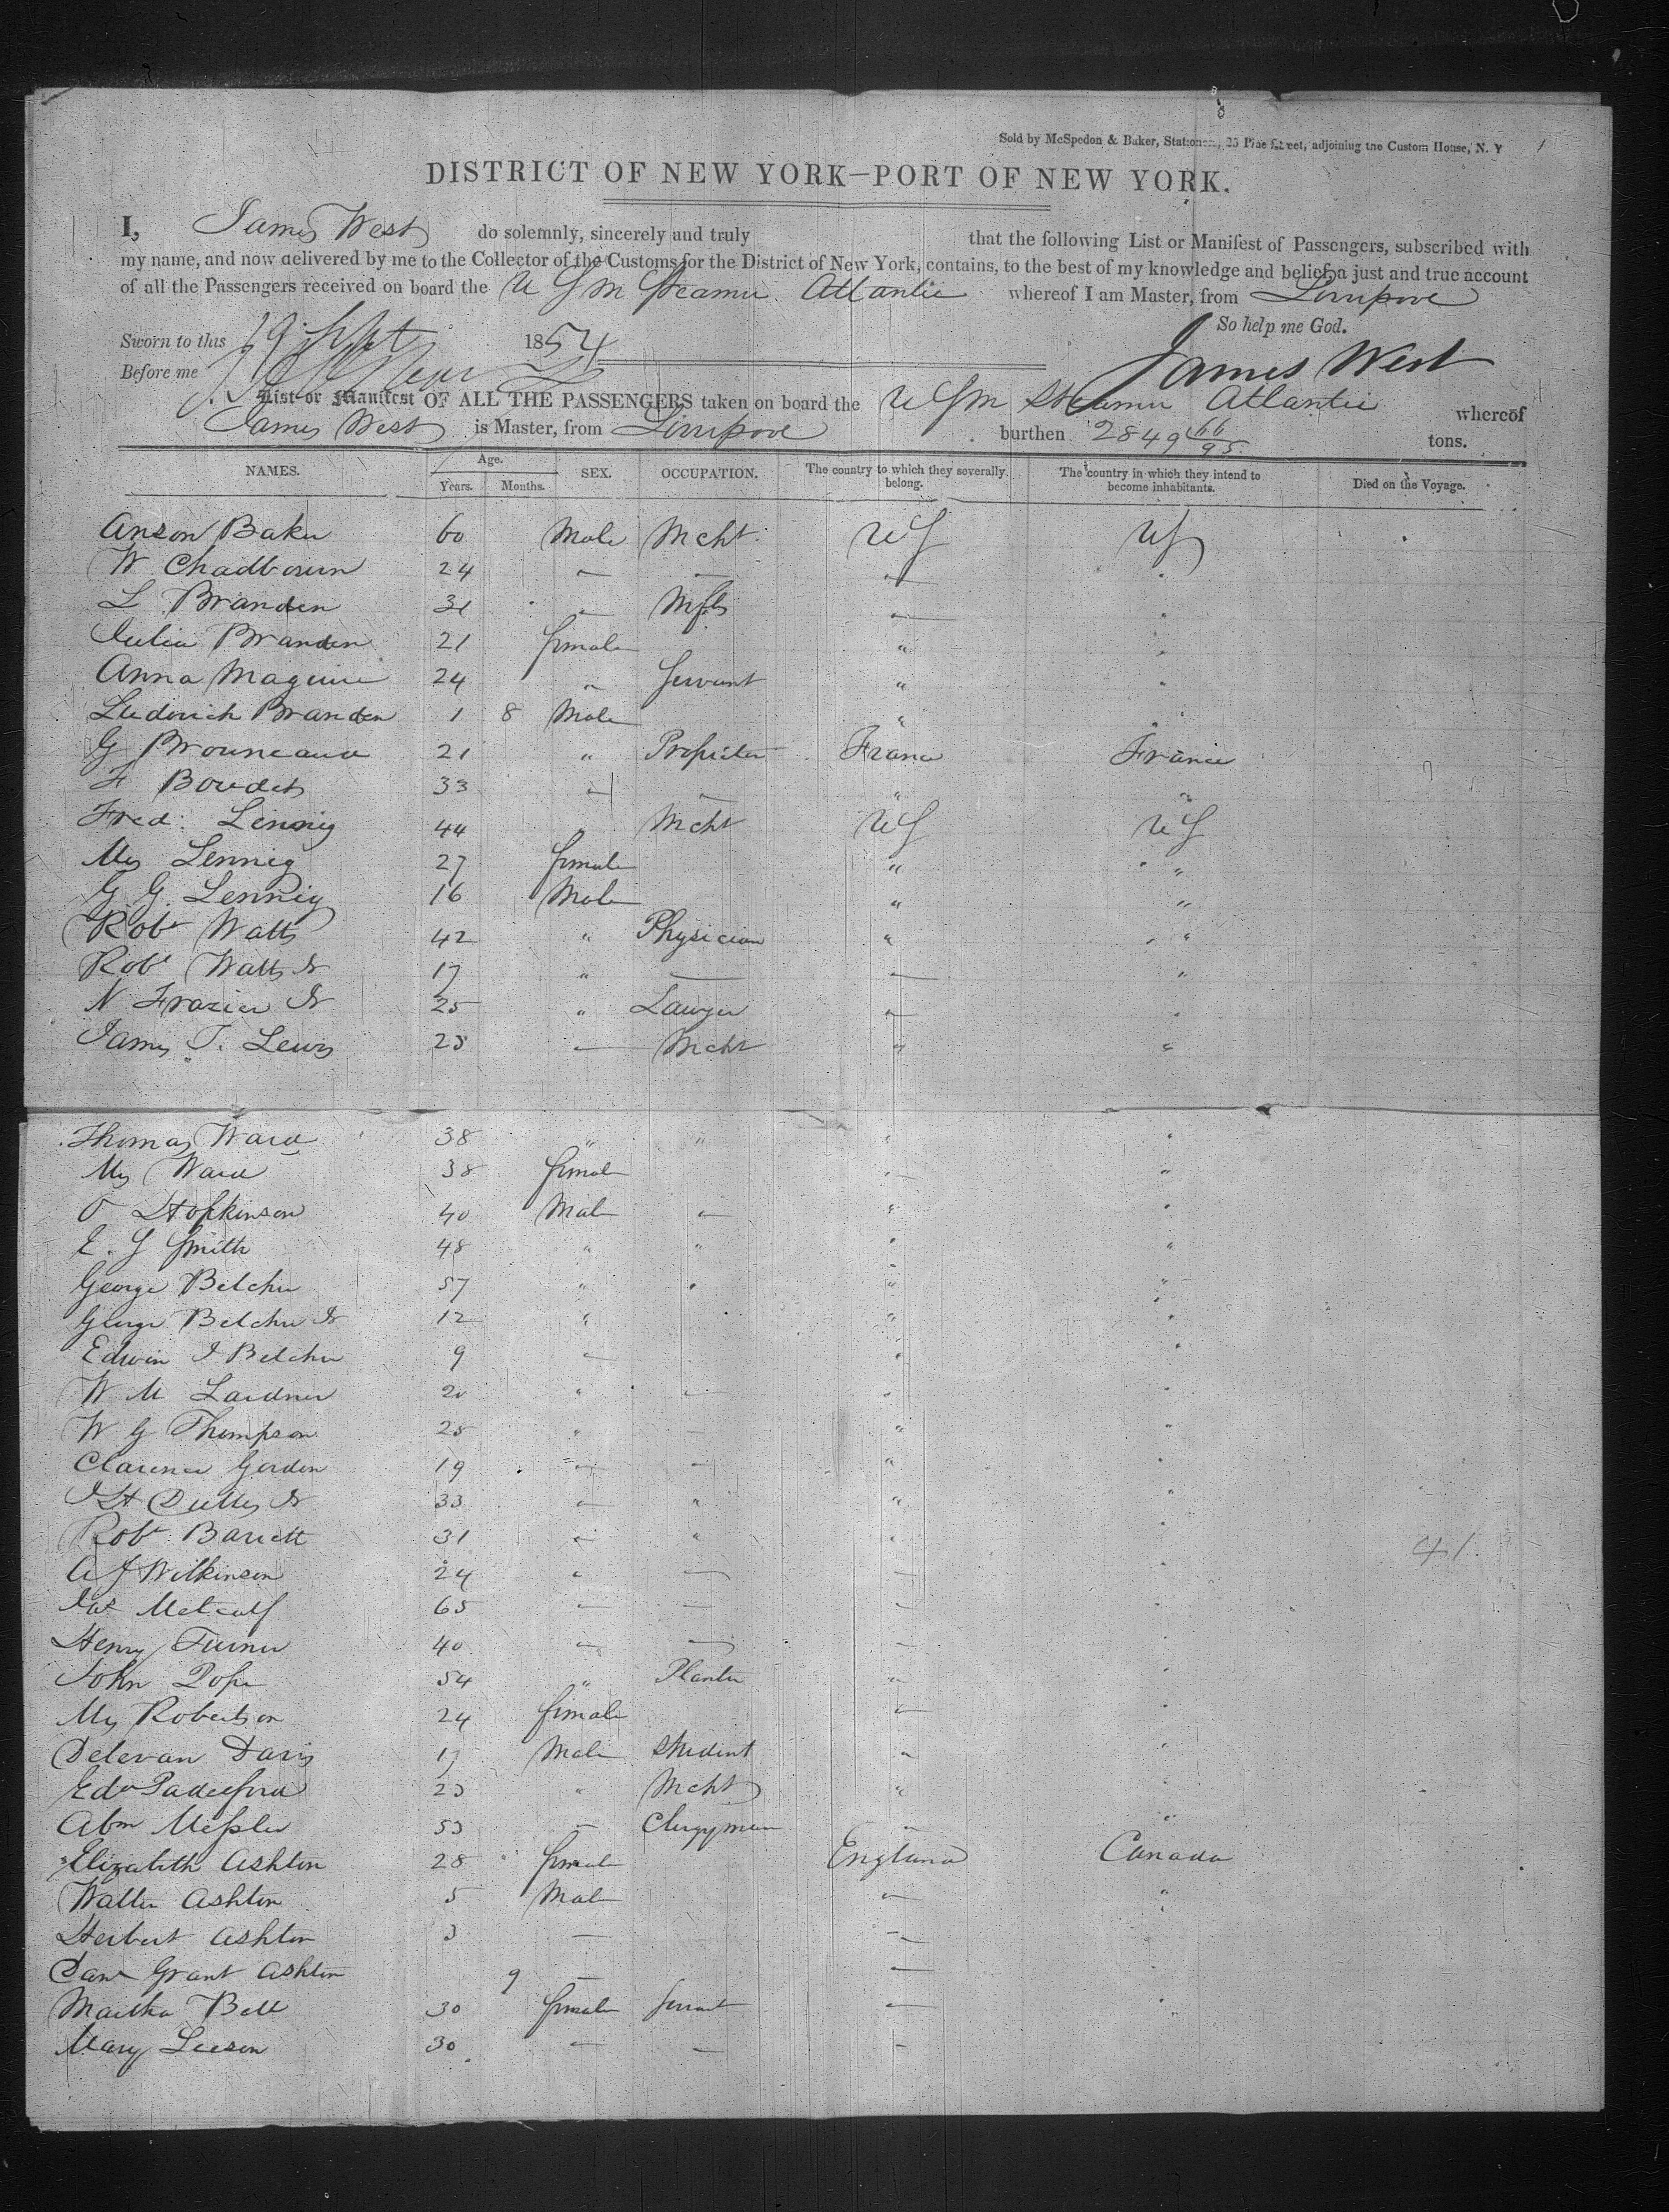 Sold by McSpedon & Baker, Stationers, 25 Pine Street, adjoining the Custom House, N. Y
DISTRICT OF NEW YORK—PORT OF NEW YORK.
I, James West do solemnly, sincerely and truly that the following List or Manifest of Passengers, subscribed with
my name, and now delivered by me to the Collector of the Customs for the District of New York, contains, to the best of my knowledge and belief, a just and true account
of all the Passengers received on board the U S M Steamer Atlantic whereof I am Master, from Liverpool
So help me God.
Sworn to this 19 Sept 1854
James West
Before me
List or Manifest OF ALL THE PASSENGERS taken on board the U S M Steamer Atlantic whereof
James West is Master, from Liverpool burthen 2849 66/95 tons.
NAMES. Age. Years. Months. SEX. OCCUPATION. The country to which they severally belong. The country in which they intend to become inhabitants. Died on the Voyage.
Anson Baker 60 Male Mcht US US
W Chadbourn 24 " — — "
L Branden 31 " — "
Julia Branden 21 female " "
Anna Maguire 24 " Servant " "
Ludovich Branden 1 8 Male " "
G Brouneaud 21 " Proprietor France France
F Boudet 33 " — " "
Fred: Lennig 44 " Mcht US US
Mrs Lennig 27 female " "
G. G. Lennig 16 Male " "
Robt Watts 42 " Physician " "
Robt Watts Jr 17 " — — "
N Frazier Jr 25 " Lawyer — "
James T. Lewis 28 — Mcht " "
Thomas Ward 38 " " " "
Mrs Ward 38 female " "
O Hopkinson 40 Male — " "
E. S Smith 48 " " " "
George Belcher 57 " " " "
George Belcher Jr 12 " " "
Edwin J Belcher 9 — " "
W M Lardner 20 " — " "
W G Thompson 28 " — " "
Clarence Gordon 19 — — " "
J H Dulles Jr 33 — " " "
Robt Barrett 31 — " " "
41
A J Wilkinson 24 " — — "
Jas Metcalf 65 — — — "
Henry Turner 40 — — — "
John Pope 54 " Planter " "
Mrs Robertson 24 female — "
Delevan Davis 17 Male Student " "
Edw Padelford 23 " Mcht " "
Abm Messler 53 — Clergyman " "
Elizabeth Ashton 28 female England Canada
Walter Ashton 5 Male — "
Herbert Ashton 3 — —
Danl Grant Ashton 9 — —
Martha Bell 30 female Servant — "
Mary Leeson 30 — — —